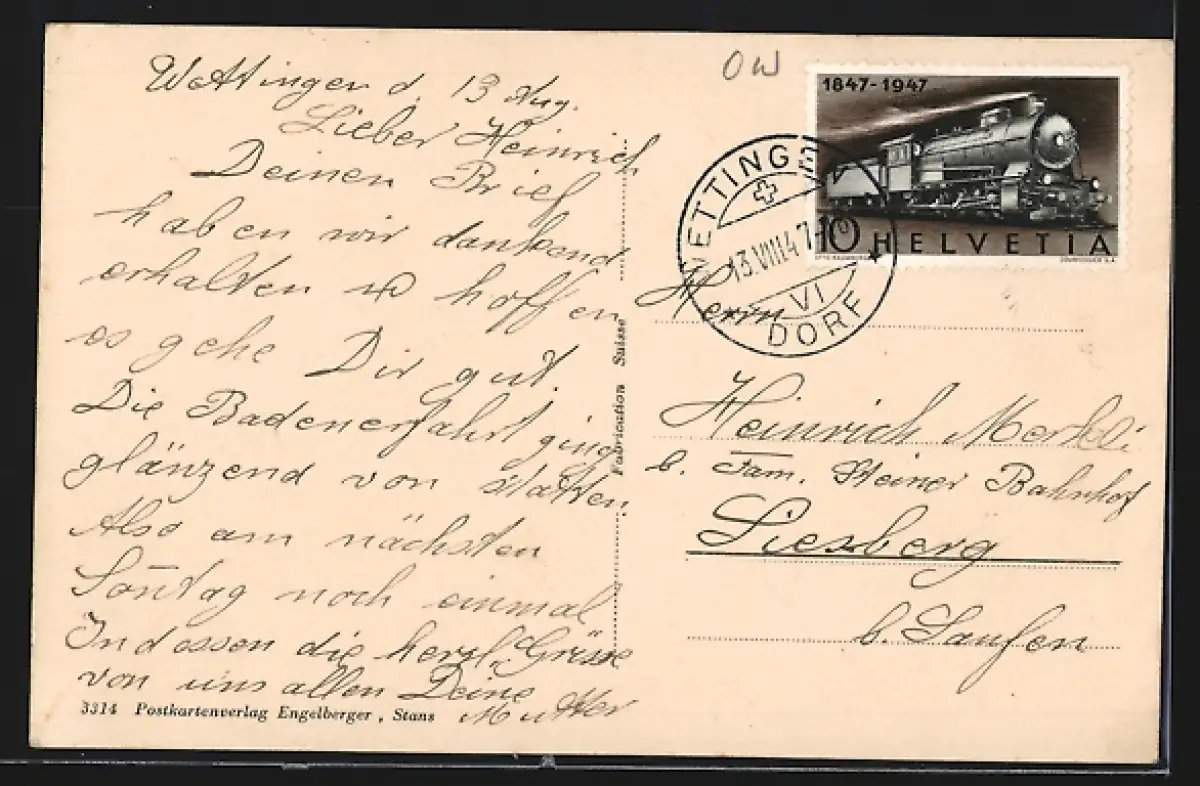 Wettingen d. 13 Aug.
Lieber Heinrich
Deinen Brief
haben wir dankend
erhalten u hoffen
es gehe Dir gut.
Die Badenerfahrt ging
glänzend von statten
Also am nächsten
Soñtag noch einmal
Indessen die herzl. Grüsse
von uns allen Deine
Mutter
3314 Postkartenverlag Engelberger, Stans
Fabrication Suisse
OW
1847-1947
10 HELVETIA
WETTINGEN
13.VIII.47
VI
DORF
Herrn
Heinrich Merkli
b. Fam. Steiner Bahnhof
Liesberg
b. Laufen